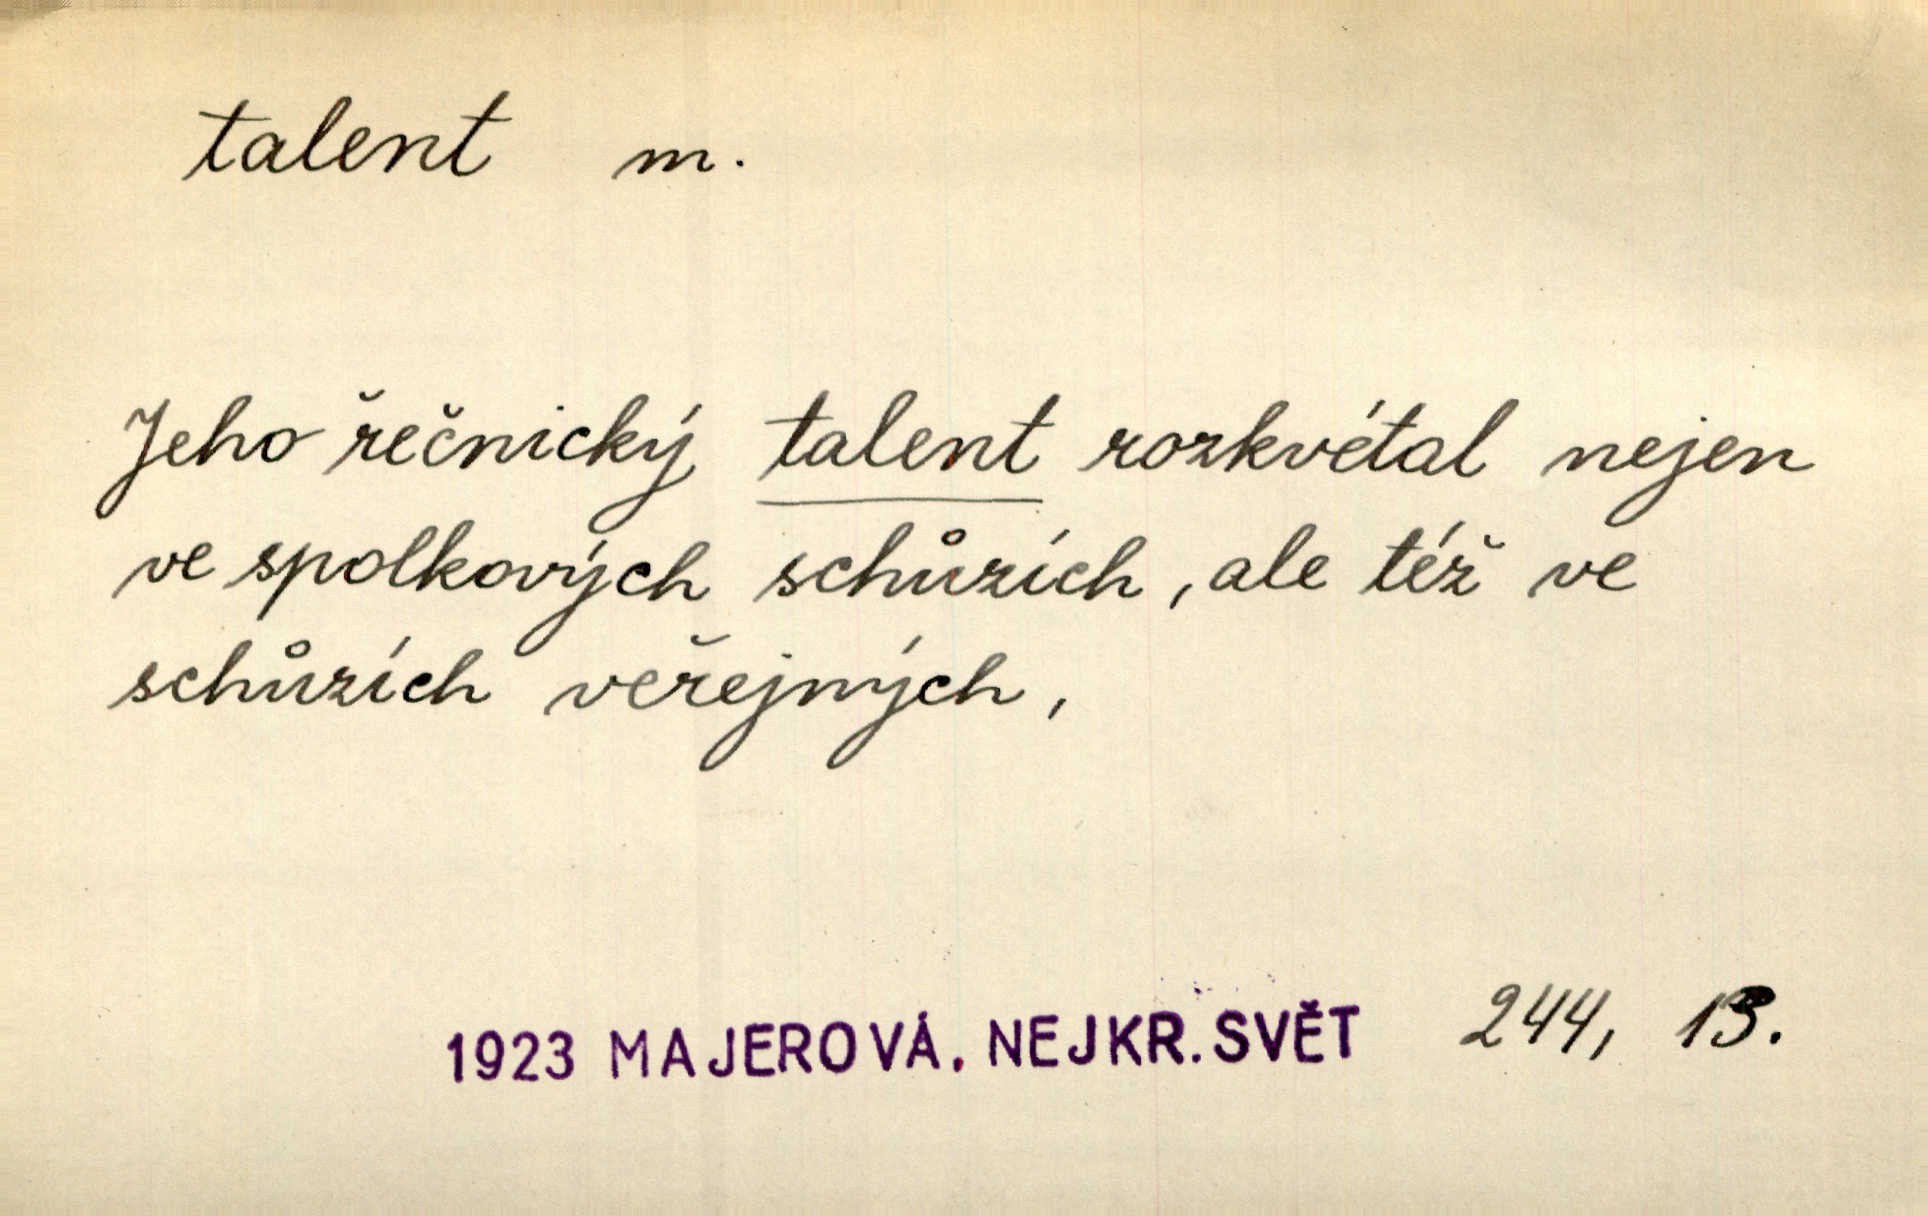 talent m.
Jeho řečnický talent rozkvétal nejen
ve spolkových schůzích, ale též ve
schůzích veřejných,
1923 MAJEROVÁ, NEJKR. SVĚT 244, 13.